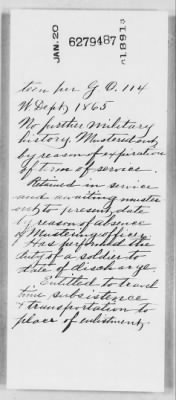 JAN. 20
6279487
1891
teen per G O. 114
W. Dept, 1865
No further military
history. Mustered out
by reason of expiration
of term of service.
Retained in service
and awaiting muster
out to present date
by reason of absence
of Mustering officer
Has performed the
duty of a soldier to
date of discharge.
Entitled to travel
time subsistence
& transportation to
place of enlistment.